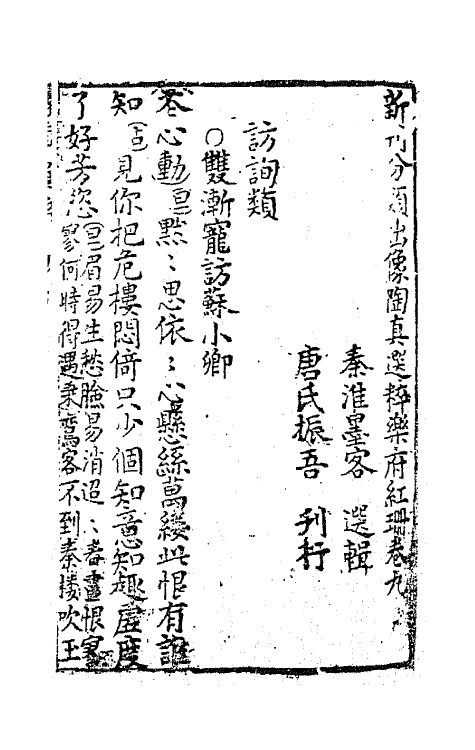 新刊分類出像陶真選粹樂府紅珊卷九
秦淮墨客 選輯
唐氏振吾 刊行
訪詢類
○雙漸寵訪蘇小卿
春心動 默〻思依〻心懸絲萬縷此恨有誰
知 見你把危樓悶倚只少個知音知趣虛度
了好芳恣 眉易生愁臉易消迢〻春晝恨
寥何時得遇秉鸞客不到秦摟吹玉